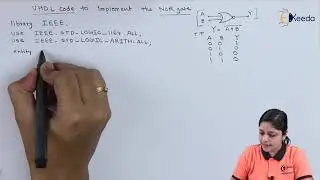 VHDL Code to implement the NOR gate
library IEEE;
use IEEE.STD_LOGIC_1164.ALL;
use IEEE.STD_LOGIC_ARITH.ALL;
entity
A
B
Y
Y = A+B
T.T
A B Y
0 0 1
0 1 0
1 0 0
1 1 0
Ekeeda